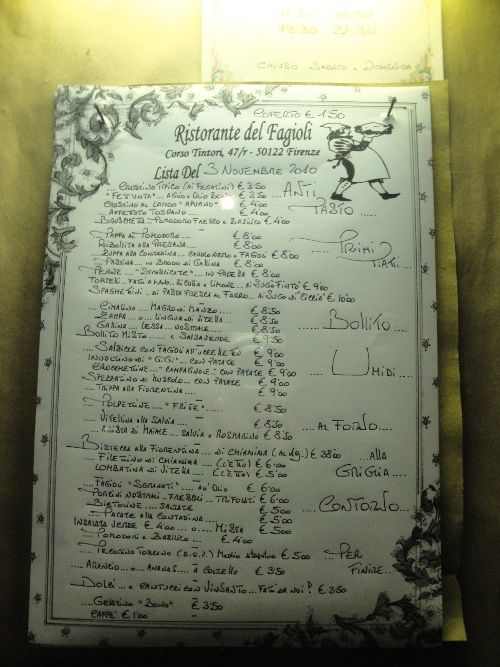 12:30 - 14:30
19:30 - 22:30
CHIUSO SABATO e DOMENICA
COPERTO € 1'50
Ristorante del Fagioli
Corso Tintori, 47/r - 50122 Firenze
Lista Del 3 NOVEMBRE 2010
CROSTINO TIPICO (AI FEGATINI) € 3'50
"FETTUNTA"... AGLIO e OLIO
CROSTINO AL LARDO "APUANO" € 4'00
AFFETTATO TOSCANO ... € 4'00
BRUSCHETTA POMODORO FRESCO e BASILICO € 4'00
ANTI
PASTO ....
PAPPA AL POMODORO.... € 8'00
RIBOLLITA ALLA € 8'00
ZUPPA ALLA CONTADINA... CAVOLO NERO e FAGIOLI € 8'00
PASTINA ... IN BRODO DI GALLINA € 8'00
PENNE ... "STRASCICATE" ... IN PADELLA € 8'00
TORTELLI.. FATTI A MANO.. RICOTTA e LIMONE... AL SUGO FINTO € 9'00
SPAGHETTINI .. DI PASTA FRESCA AL FARRO.. AL SUGO DI CICCIA € 10'00
PRIMI
PIATTI ...
.... MAGRO DI MANZO.... € 8'50
ZAMPA ... O ... LINGUA DI VITELLA € 8'50
GALLINA .... LESSA.. NOSTRALE... € 8'50
BOLLITO MISTO .... e SALSA VERDE € 9'50
...... BOLLITO ....
...SALSICCE CON FAGIOLI ALL'UCCELLETTO € 9'00
INVOLTINO DI "GIGI" ... CON PATATE € 9'00
CROCCHETTINE... "CAMPAGNOLE".. CON PATATE € 9'00
SPEZZATINO DI MUSCOLO... CON PATATE € 9'00
.... TRIPPA ALLA FIORENTINA... € 8'00
..... UMIDI ....
... POLPETTINE... "FRITTE" ..... € 8'50
.... VITELLINA ALLA SALVIA € 8'50
.... ARISTA DI MAIALE .. SALVIA e ROSMARINO € 8'50
... AL FORNO....
BISTECCA ALLA FIORENTINA ... DI CHIANINA (AL Kg.) € 38'00
FILETTINO DI CHIANINA .... (L'ETTO) € 6'00
LOMBATINA DI VITELLA ... (L'ETTO) € 5'00
... ALLA
GRIGLIA ....
.... FAGIOLI "SGRANATI" .... ALL'OLIO € 6'00
PORCINI NOSTRALI .. FRESCHI ... TRIFOLATI € 6'00
BIETOLINE .... SALTATE € 5'00
.... PATATE ALLA CONTADINA ... € 5'00
INSALATA VERDE € 4'00 ... O ..... MISTA € 5'00
... POMODORI e BASILICO ... € 4'00
.... CONTORNO ...
... PECORINO TOSCANO (D.O.P.) MEDIA € 5'00
.... ARANCIO ... O ... ANANAS... A € 3'50
DOLCI ... e CANTUCCI CON VINSANTO ... FATTI DA NOI! € 3'50
.... GELATINO "BONO" € 3'50
CAFFE' € 1'00
.... PER
FINIRE...